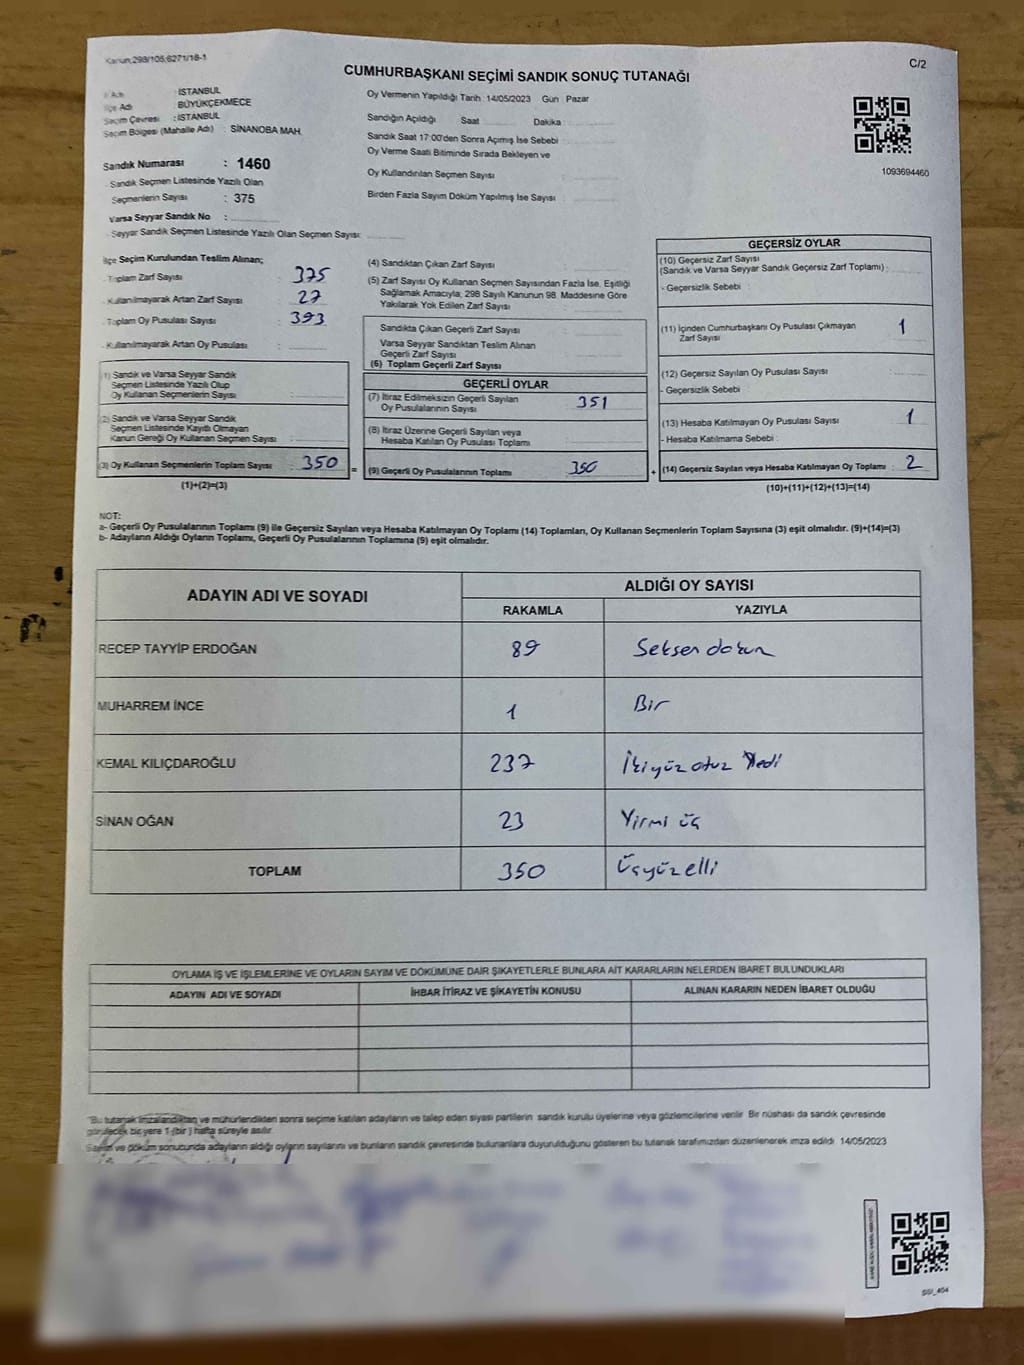 Kanun:298/105;6271/18-1
C/2
CUMHURBAŞKANI SEÇİMİ SANDIK SONUÇ TUTANAĞI
İl Adı : İSTANBUL
İlçe Adı : BÜYÜKÇEKMECE
Seçim Çevresi : İSTANBUL
Seçim Bölgesi (Mahalle Adı) : SİNANOBA MAH.
Sandık Numarası : 1460
Sandık Seçmen Listesinde Yazılı Olan
Seçmenlerin Sayısı : 375
Varsa Seyyar Sandık No :
Seyyar Sandık Seçmen Listesinde Yazılı Olan Seçmen Sayısı:
Oy Vermenin Yapıldığı Tarih :14/05/2023 Gün : Pazar
Sandığın Açıldığı Saat Dakika :
Sandık Saat 17:00'den Sonra Açılmış İse Sebebi :
Oy Verme Saati Bitiminde Sırada Bekleyen ve
Oy Kullandırılan Seçmen Sayısı :
Birden Fazla Sayım Döküm Yapılmış İse Sayısı :
1093694460
İlçe Seçim Kurulundan Teslim Alınan;
Toplam Zarf Sayısı : 375
Kullanılmayarak Artan Zarf Sayısı : 27
Toplam Oy Pusulası Sayısı : 393
Kullanılmayarak Artan Oy Pusulası :
(1) Sandık ve Varsa Seyyar Sandık
Seçmen Listesinde Yazılı Olup
Oy Kullanan Seçmenlerin Sayısı :
(2) Sandık ve Varsa Seyyar Sandık
Seçmen Listesinde Kayıtlı Olmayan
Kanun Gereği Oy Kullanan Seçmen Sayısı :
(3) Oy Kullanan Seçmenlerin Toplam Sayısı : 350 =
(1)+(2)=(3)
(4) Sandıktan Çıkan Zarf Sayısı :
(5) Zarf Sayısı Oy Kullanan Seçmen Sayısından Fazla İse, Eşitliği
Sağlamak Amacıyla, 298 Sayılı Kanunun 98. Maddesine Göre
Yakılarak Yok Edilen Zarf Sayısı :
Sandıkta Çıkan Geçerli Zarf Sayısı :
Varsa Seyyar Sandıktan Teslim Alınan
Geçerli Zarf Sayısı :
(6) Toplam Geçerli Zarf Sayısı :
GEÇERLİ OYLAR
(7) İtiraz Edilmeksizin Geçerli Sayılan
Oy Pusulalarının Sayısı : 351
(8) İtiraz Üzerine Geçerli Sayılan veya
Hesaba Katılan Oy Pusulası Toplamı :
(9) Geçerli Oy Pusulalarının Toplamı : 350 +
GEÇERSİZ OYLAR
(10) Geçersiz Zarf Sayısı
(Sandık ve Varsa Seyyar Sandık Geçersiz Zarf Toplamı) :
- Geçersizlik Sebebi :
(11) İçinden Cumhurbaşkanı Oy Pusulası Çıkmayan
Zarf Sayısı : 1
(12) Geçersiz Sayılan Oy Pusulası Sayısı :
- Geçersizlik Sebebi :
(13) Hesaba Katılmayan Oy Pusulası Sayısı : 1
- Hesaba Katılmama Sebebi :
(14) Geçersiz Sayılan veya Hesaba Katılmayan Oy Toplamı : 2
(10)+(11)+(12)+(13)=(14)
NOT:
a- Geçerli Oy Pusulalarının Toplamı (9) ile Geçersiz Sayılan veya Hesaba Katılmayan Oy Toplamı (14) Toplamları, Oy Kullanan Seçmenlerin Toplam Sayısına (3) eşit olmalıdır. (9)+(14)=(3)
b- Adayların Aldığı Oyların Toplamı, Geçerli Oy Pusulalarının Toplamına (9) eşit olmalıdır.
ADAYIN ADI VE SOYADI ALDIĞI OY SAYISI
RAKAMLA YAZIYLA
RECEP TAYYİP ERDOĞAN 89 Seksen dokuz
MUHARREM İNCE 1 Bir
KEMAL KILIÇDAROĞLU 237 İkiyüz otuz Yedi
SİNAN OĞAN 23 Yirmi üç
TOPLAM 350 Üçyüz elli
OYLAMA İŞ VE İŞLEMLERİNE VE OYLARIN SAYIM VE DÖKÜMÜNE DAİR ŞİKAYETLERLE BUNLARA AİT KARARLARIN NELERDEN İBARET BULUNDUKLARI
ADAYIN ADI VE SOYADI İHBAR İTİRAZ VE ŞİKAYETİN KONUSU ALINAN KARARIN NEDEN İBARET OLDUĞU
"Bu tutanak imzalandıktan ve mühürlendikten sonra seçime katılan adayların ve talep eden siyasi partilerin sandık kurulu üyelerine veya gözlemcilerine verilir. Bir nüshası da sandık çevresinde
görülecek bir yere 1 (bir) hafta süreyle asılır.
Sayım ve döküm sonucunda adayların aldığı oyların sayılarını ve bunların sandık çevresinde bulunanlara duyurulduğunu gösteren bu tutanak tarafımızdan düzenlenerek imza edildi. 14/05/2023
SGI_404